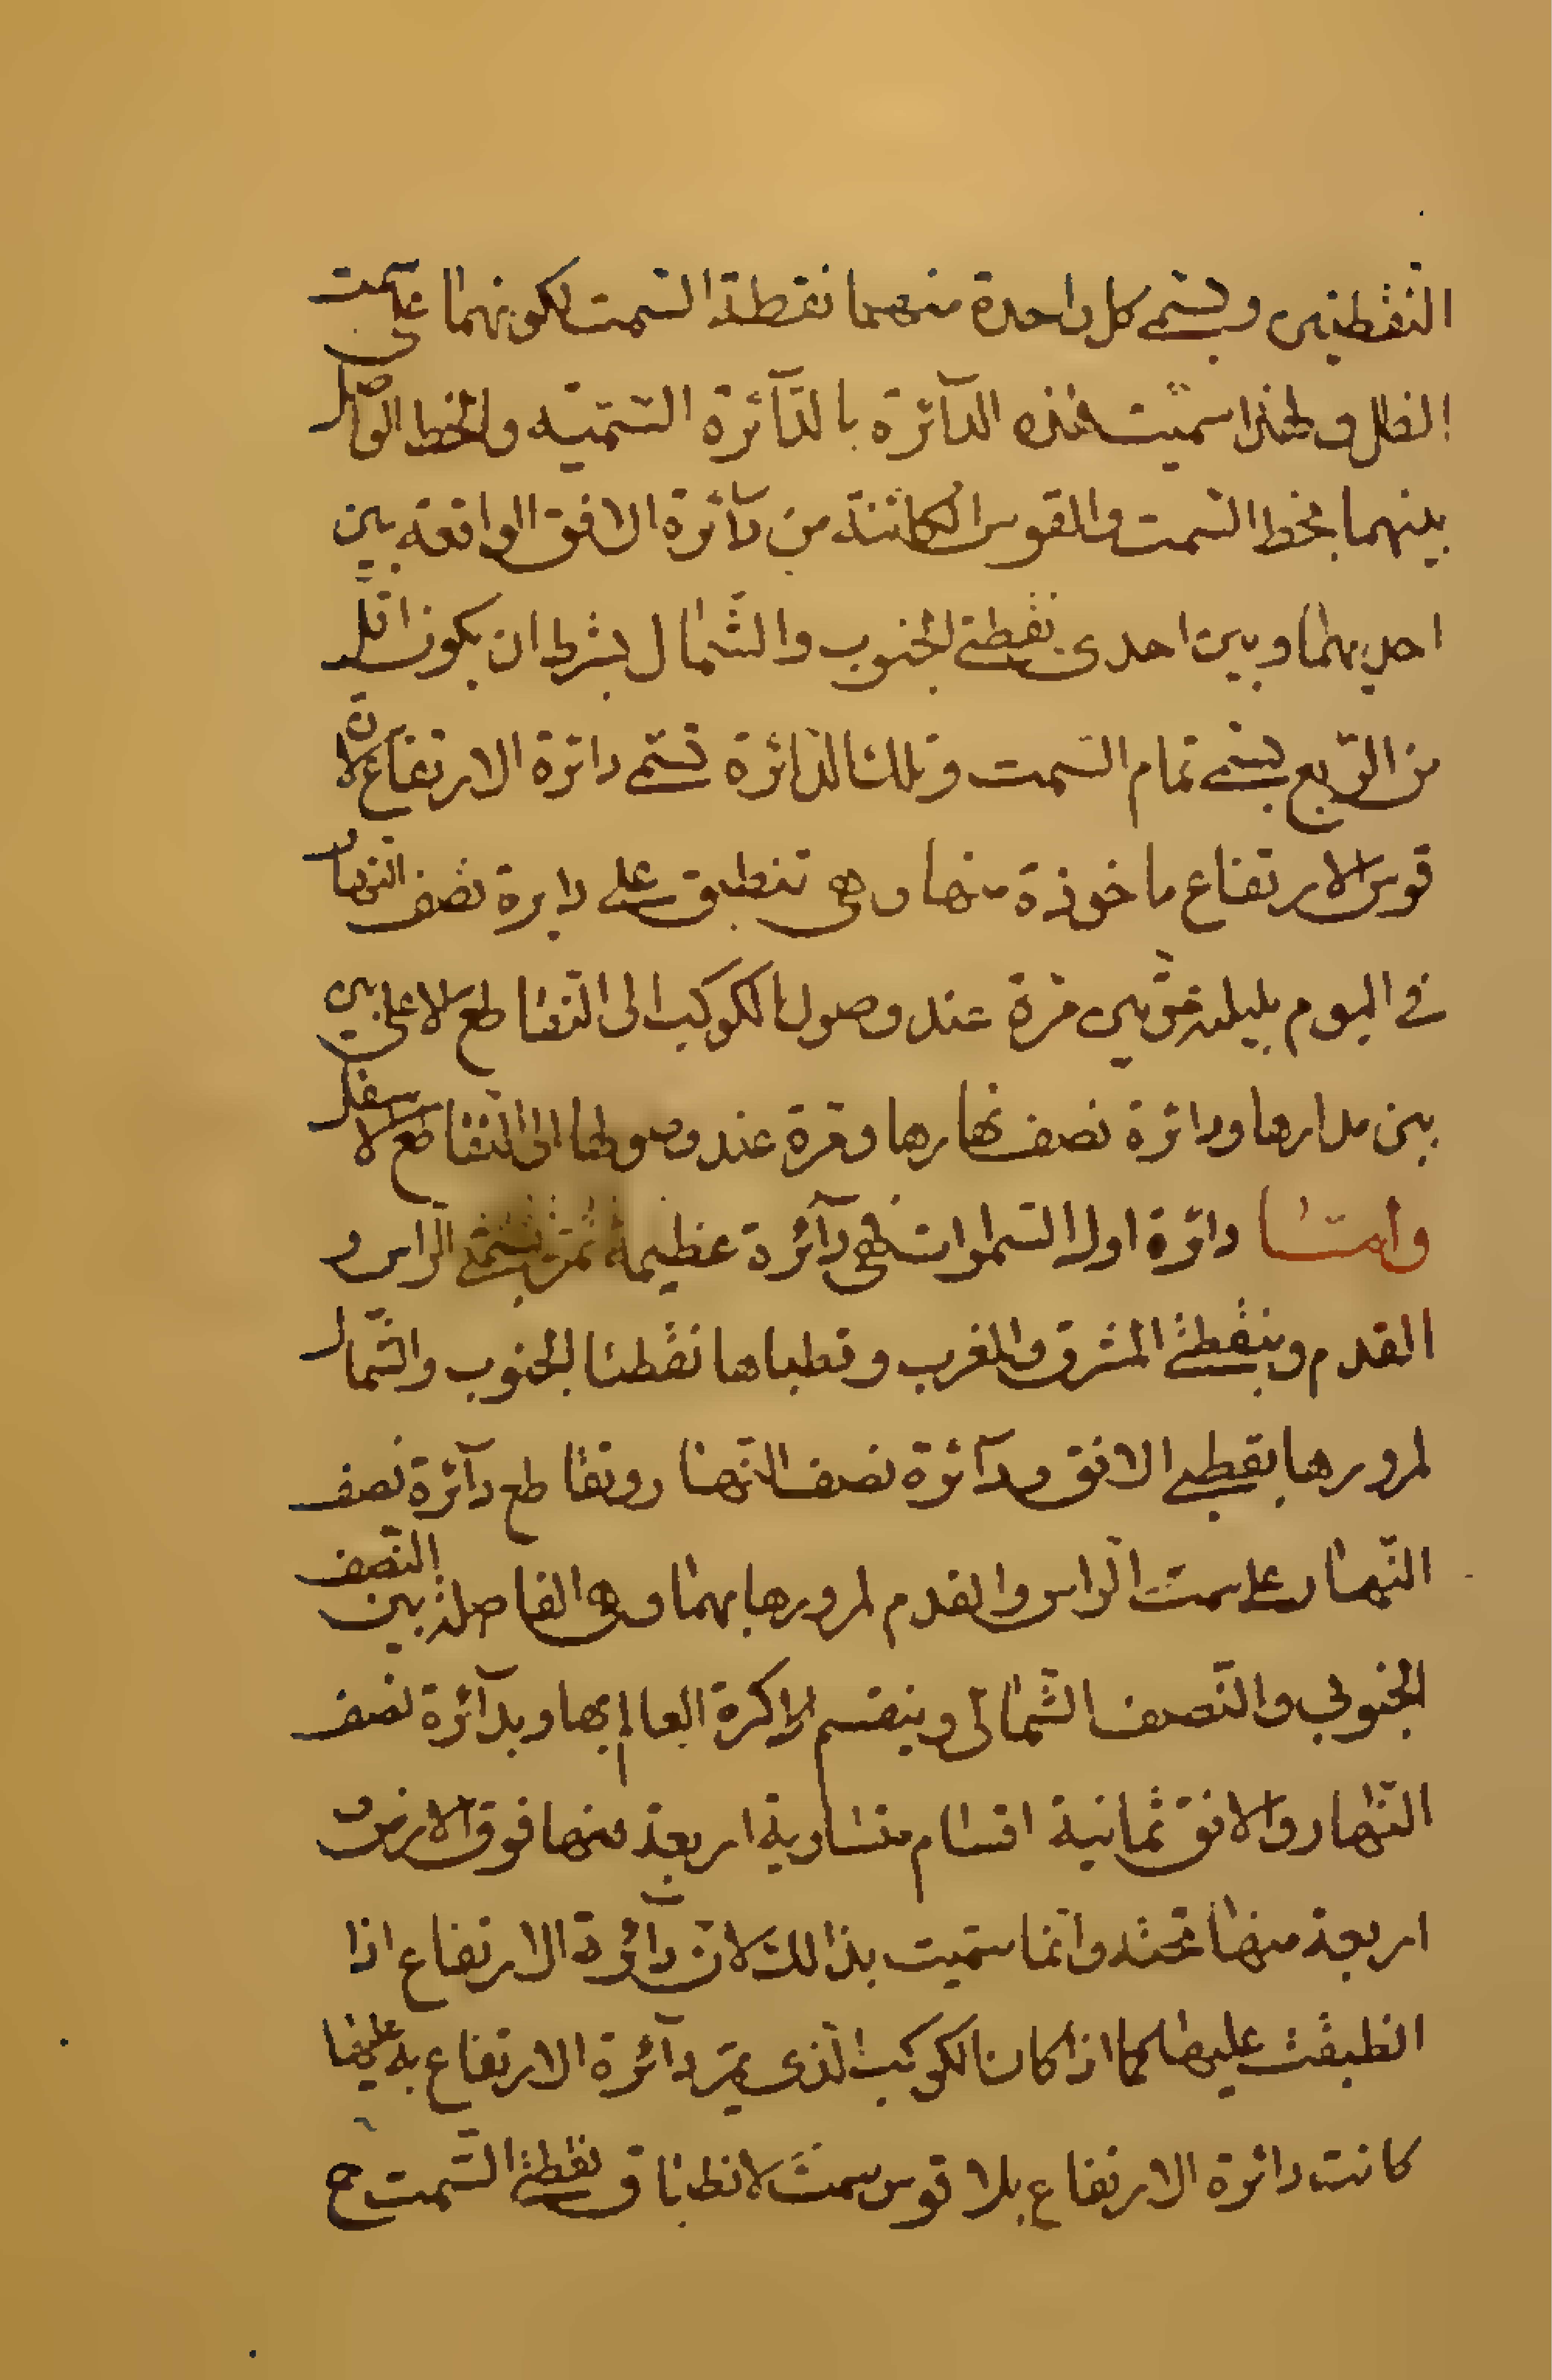 النقطتين ويسمى كل واحدة منهما نقطة السمت لكونهما على سمت
الظل ولهذا سميت هذه الدآئرة بالدآئرة السمتية والخط الواصل
بينهما بخط السمت والقوس الكائنة من دآئرة الافق الواقعة بين
احديهما وبين احدى نقطتى الجنوب والشمال بشرط ان يكون اقل
من الربع يسمى تمام السمت وتلك الدائرة تسمى دائرة الارتفاع لان
قوس الارتفاع ماخوذة منها وهى تنطبق على دايرة نصف النهار
فى اليوم بليلته مرتين مرة عند وصول الكوكب الى التقاطع الاعلى بين
بين مدارها ودائرة نصف نهارها ومرة عند وصولها الى التقاطع الاسفل
وامتا دائرة اول السموات فهى دآئرة عظيمة تمر بسمتى الراس و
القدم وبنقطتى المشرق والمغرب وقطباها نقطتا الجنوب والشمال
لمرورها بقطبى الافق ودآئرة نصف النهار وتقاطع دآئرة نصف
النهار على سمت الراس والقدم لمرورها بهما وهى الفاصلة بين النصف
الجنوبى والنصف الشمالى وينقسم الاكرة العالم بها وبدآئرة نصف
النهار والافق ثمانية اقسام متساوية اربعة منها فوق الارض و
اربعة منها تحته وانما سميت بذالك لان دآئرة الارتفاع اذا
انطبقت عليها كما اذا كان الكوكب الذى يمر دآئرة الارتفاع به عليها
كانت دائرة الارتفاع بلا قوس سمت لانطباق نقطتى السمت ح